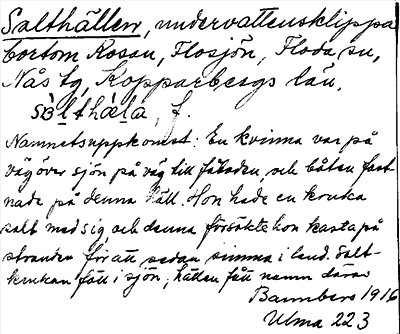 Salthällen, undervattensklippa
bortom Rosan, Flosjön, Floda sn,
Nås tg, Kopparbergs län.
sàlthæ̀la, f.
Namnets uppkomst: En kvinna var på
väg över sjön på väg till fäboden, och båten fast-
nade på denna häll. Hon hade en kruka
salt med sig och denna försökte hon kasta på
stranden för att sedan simma i land. Salt-
krukan föll i sjön; hällen fått namn därav
Bannbers 1916
Ulma 223